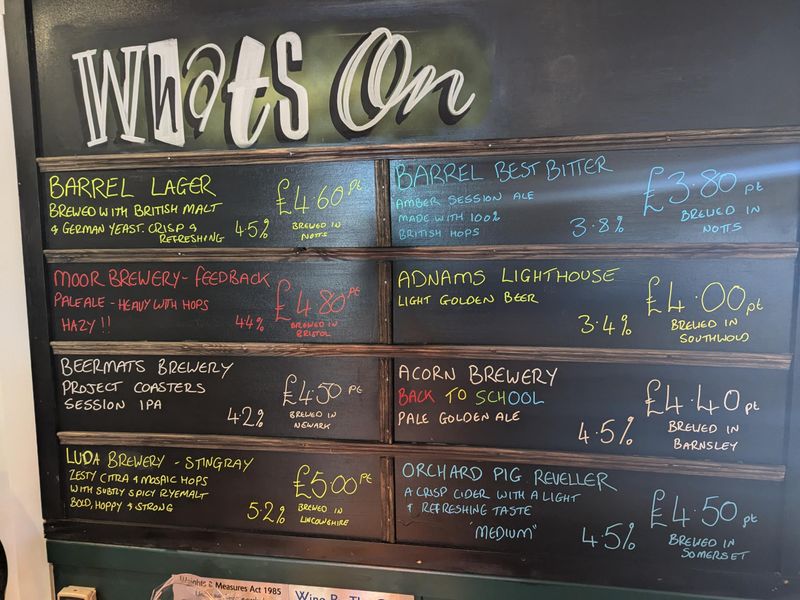 Whats On
BARREL LAGER
BREWED WITH BRITISH MALT
& GERMAN YEAST. CRISP &
REFRESHING
4.5%
£4.60 pt
BREWED IN
NOTTS
BARREL BEST BITTER
AMBER SESSION ALE
MADE WITH 100%
BRITISH HOPS
3.8%
£3.80 pt
BREWED IN
NOTTS
MOOR BREWERY - FEEDBACK
PALE ALE - HEAVY WITH HOPS
HAZY !!
4.4%
£4.80 pt
BREWED IN
BRISTOL
ADNAMS LIGHTHOUSE
LIGHT GOLDEN BEER
3.4%
£4.00 pt
BREWED IN
SOUTHWOLD
BEERMATS BREWERY
PROJECT COASTERS
SESSION IPA
4.2%
£4.50 pt
BREWED IN
NEWARK
ACORN BREWERY
BACK TO SCHOOL
PALE GOLDEN ALE
4.5%
£4.40 pt
BREWED IN
BARNSLEY
LUDA BREWERY - STINGRAY
ZESTY CITRA & MOSAIC HOPS
WITH SUBTLY SPICY RYE MALT
BOLD, HOPPY & STRONG
5.2%
£5.00 pt
BREWED IN
LINCOLNSHIRE
ORCHARD PIG REVELLER
A CRISP CIDER WITH A LIGHT
& REFRESHING TASTE
"MEDIUM"
4.5%
£4.50 pt
BREWED IN
SOMERSET
Weights & Measures Act 1985
Wine By The